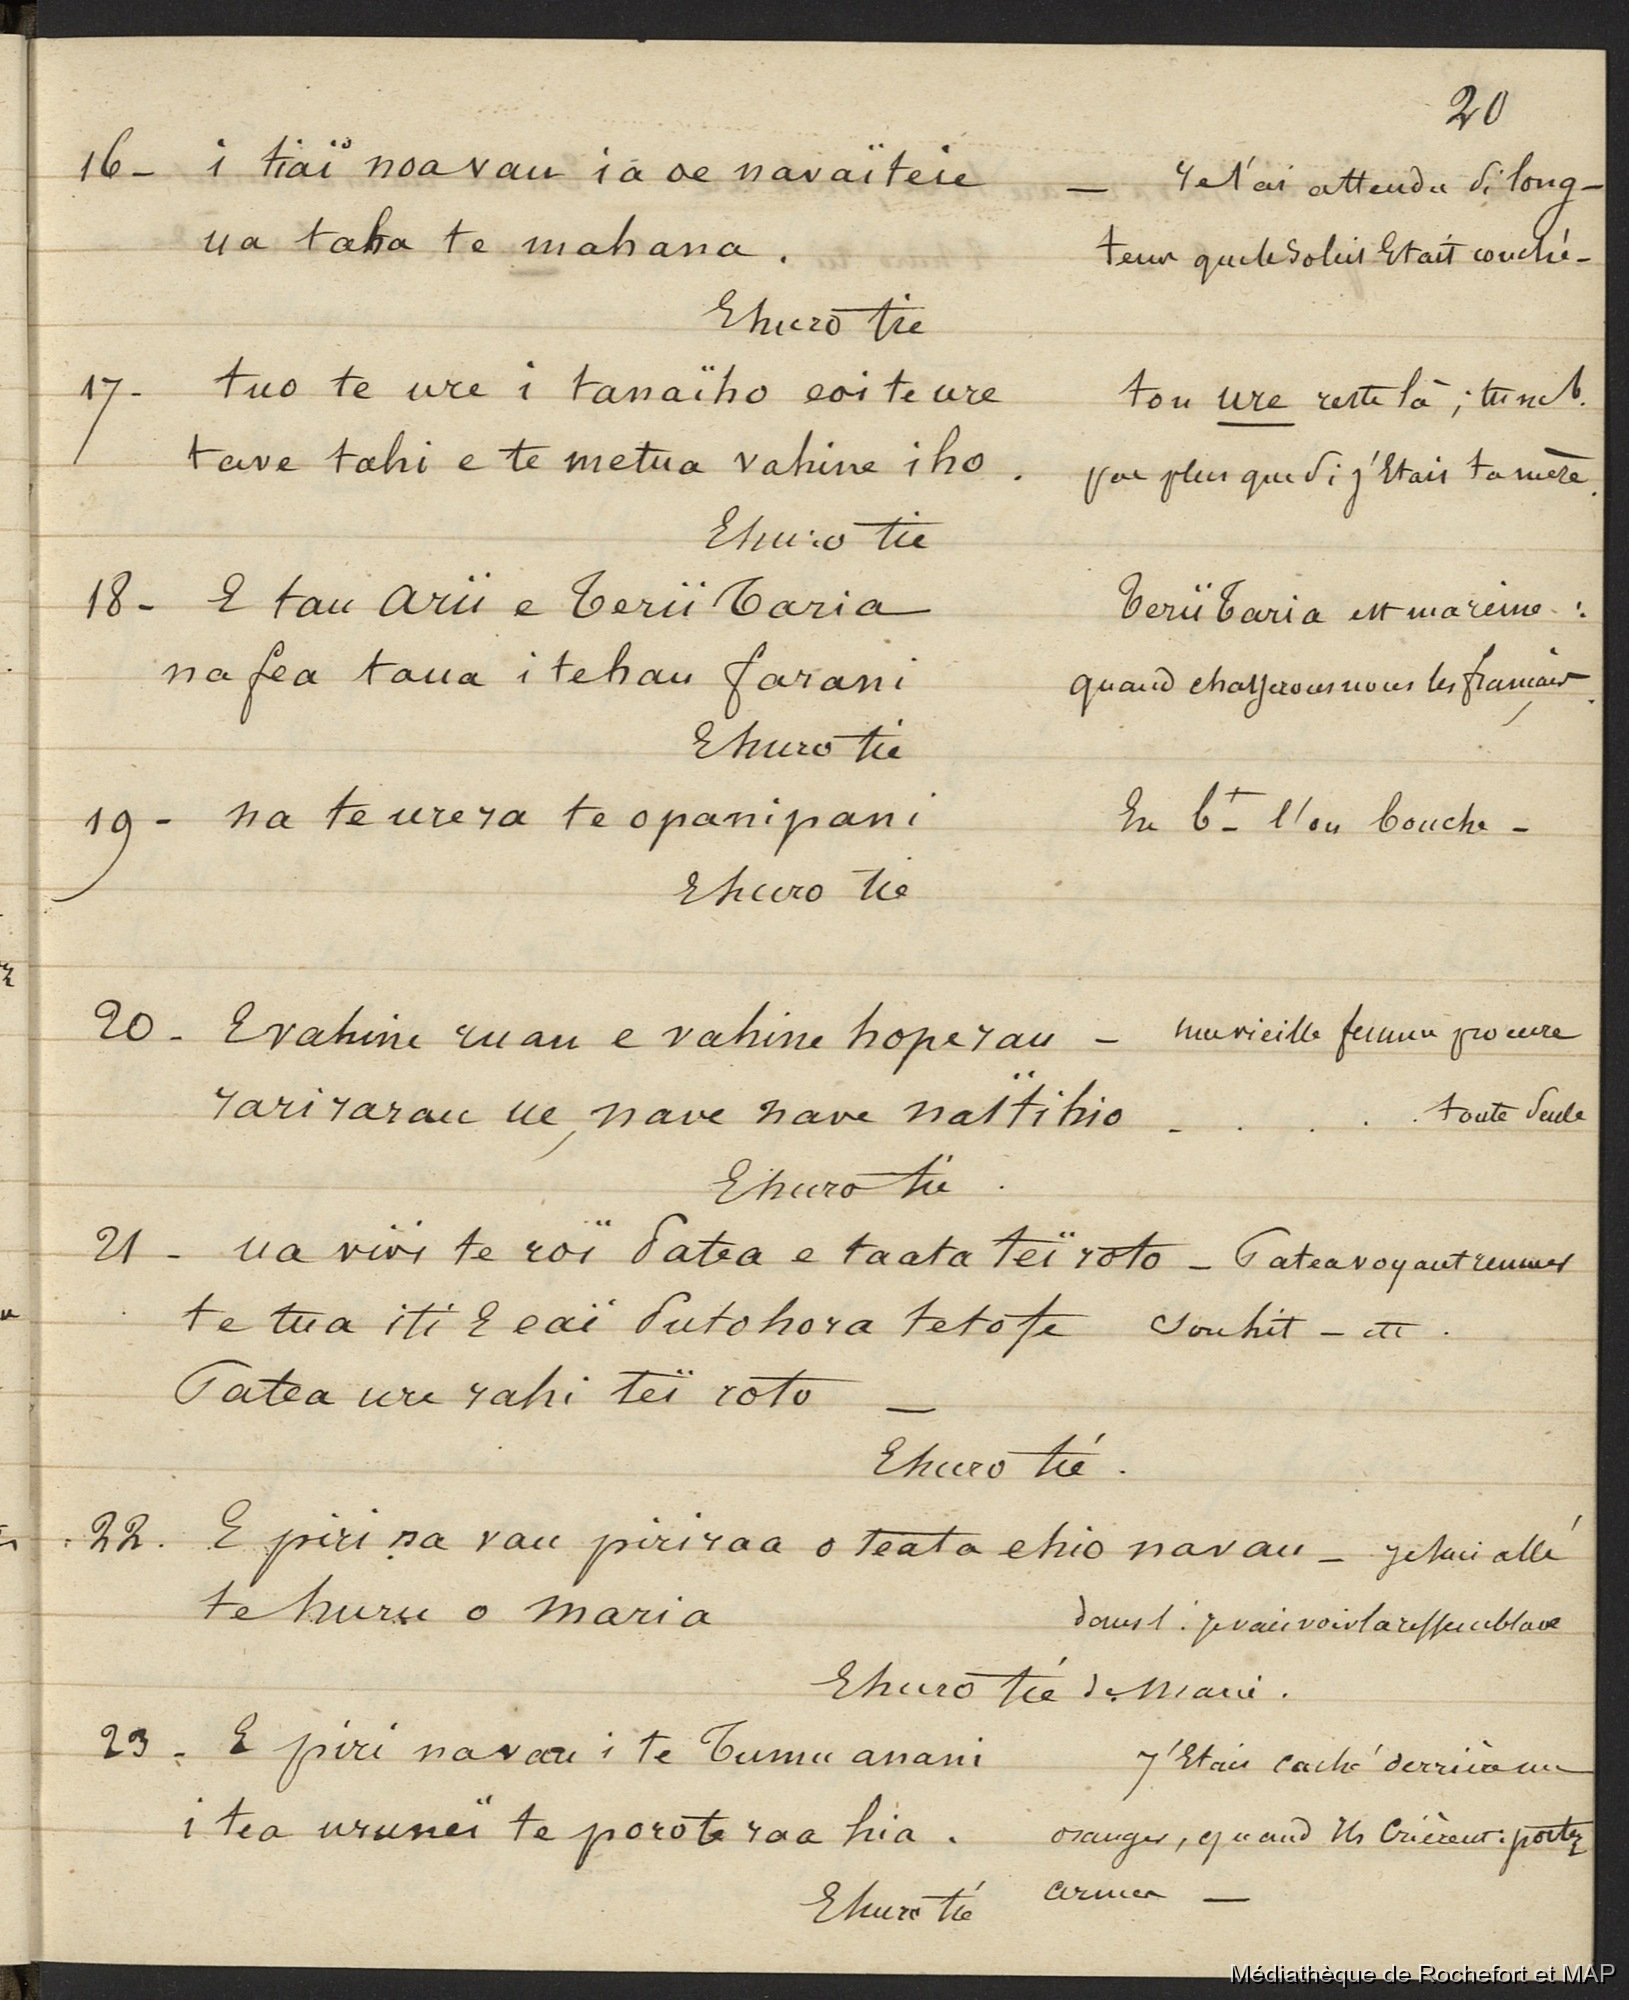 20
16 - i tiaï noa vau ia oe navaïteie — Je t'ai attendu si long-
ua taha te mahana . tems que le soleil Etait couché -
Ehuro tie
17 - tuo te ure i tanaïho eoi te ure ton ure reste là ; tu ne b.
tave tahi e te metua vahine iho . pas plus que si j'Etais ta mère .
Ehuro tie
18 - E tau Arii e Terii Taria Terii Taria est ma reine :
na fea taua i te hau farani quand chasserons nous les français .
Ehuro tie
19 - na te urera te opanipani En bt l'on bouche -
Ehuro tie
20 - E vahine ruau e vahine hoperau - une vieille femme procure
rarirarau ue, nave nave naïtihio - . . . . toute seule
Ehuro tie .
21 - ua vivi te roï Patea e taata teï roto - Patea voyant remuer
te tua iti E eaï Putohora te tofe son lit - etc .
Patea ure rahi teï roto —
Ehuro tié .
22 . E piri na vau piriraa o teata ehio na vau - je suis allé
te huru o Maria dans l . je vais voir la ressemblance
Ehuro tié de Marie .
23 - E piri na vau i te Tumu anani J'Etais caché derrière un
i tea uruneï te poroteraa hia . oranger, quand Ils Crièrent : portez
Ehuro tié armes —
Médiathèque de Rochefort et MAP